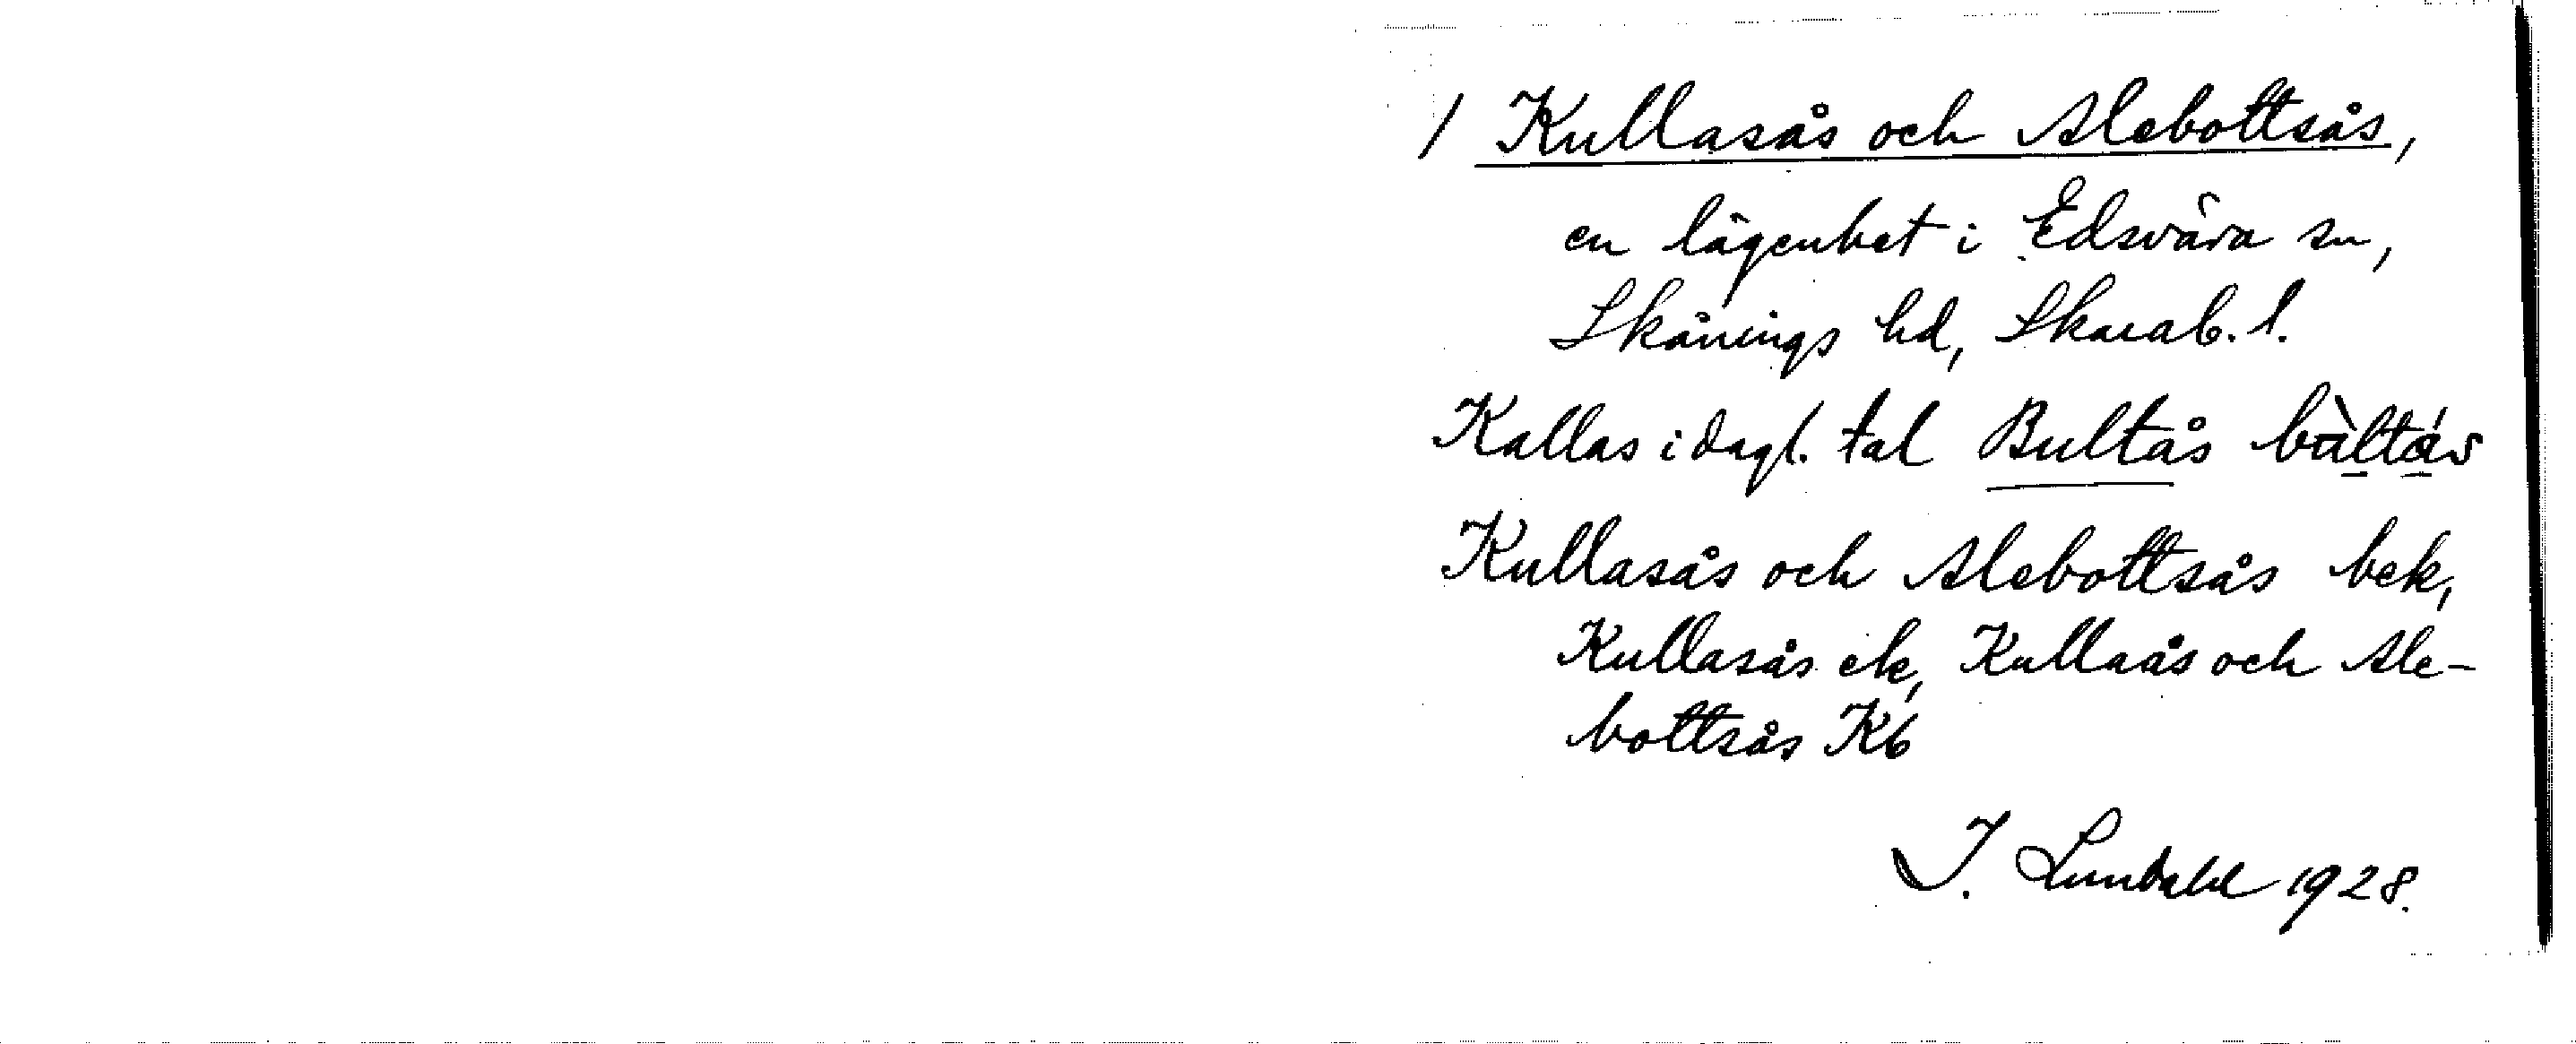 / Kullasås och Alebottsås,
en lägenhet i Edsvära sn,
Skånings hd, Skarab. l.
Kallas i dagl. tal Bultås bùltás
Kullasås och Alebottsås bek,
Kullasås ek, Kullaås och Ale-
bottsås Kb
I. Lundahl 1928.